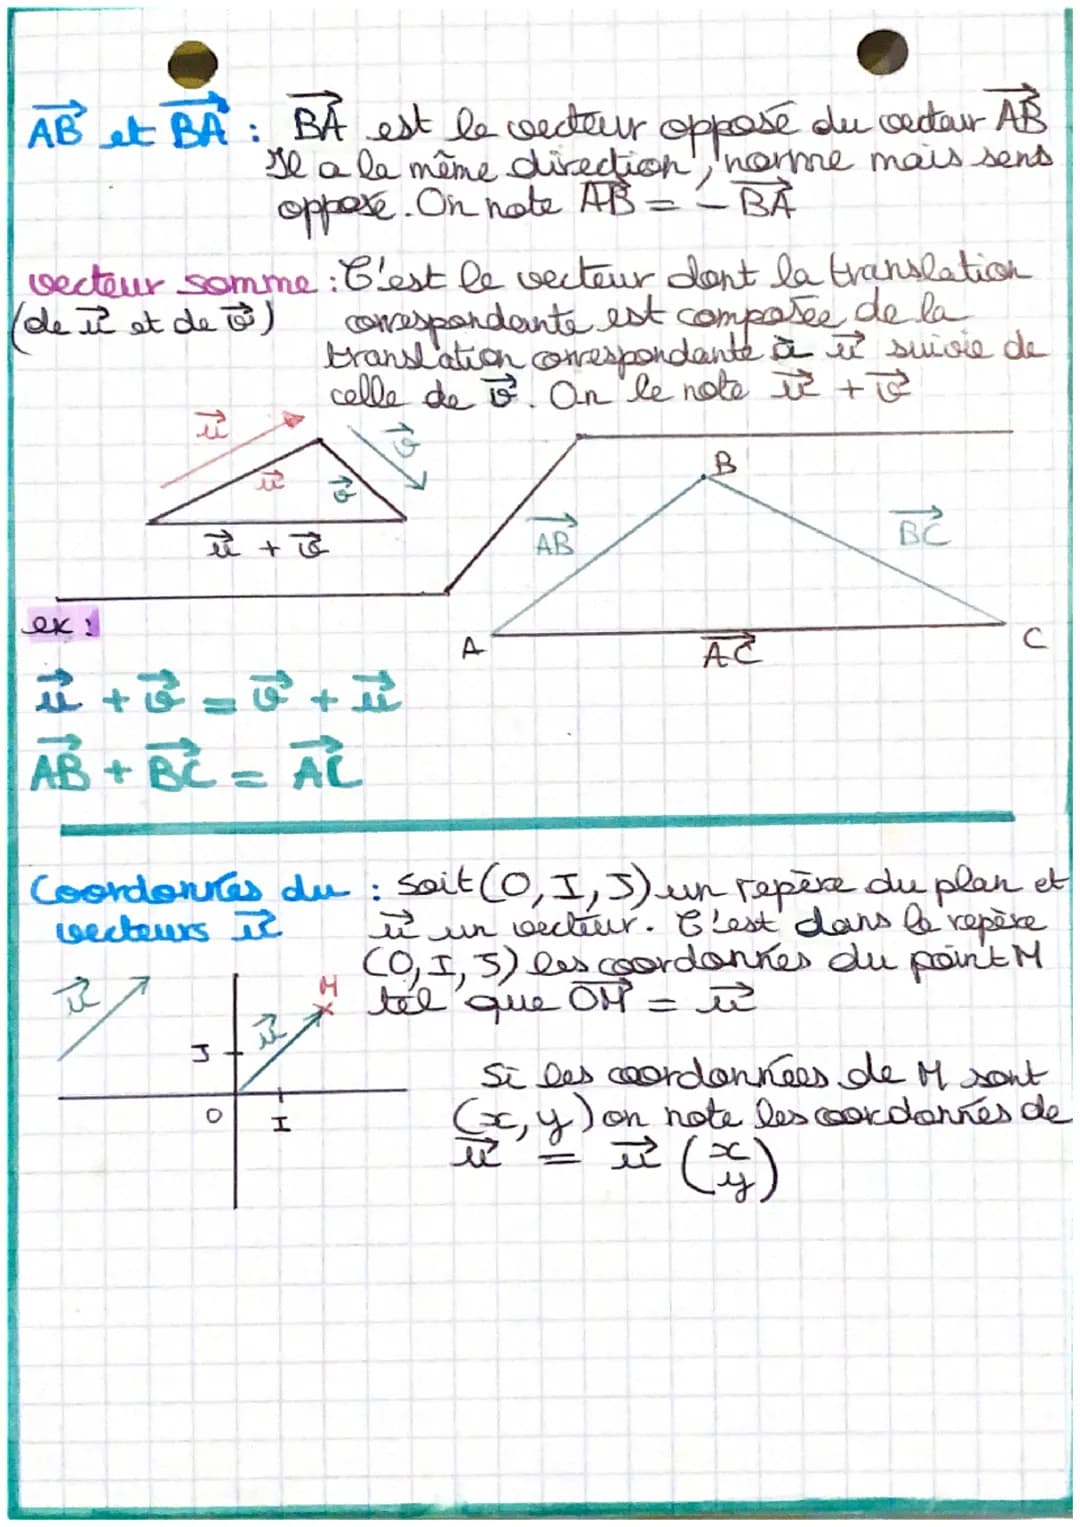 AB et BA : BA est le vecteur opposé du vecteur AB
Il a la même direction, norme mais sens
opposé. On note AB = - BA
vecteur somme : C'est le vecteur dont la translation
(de u et de v) correspondante est composée de la
translation correspondante à u suivie de
celle de v. On le note u + v
u
v
u
v
u + v
B
AB
BC
A
AC
C
ex :
u + v = v + u
AB + BC = AC
Coordonnées du : Soit (O, I, J) un repère du plan et
vecteurs u u un vecteur. C'est dans le repère
(O, I, J) les coordonnées du point M
tel que OM = u
u
M
u
J
O
I
Si les coordonnées de M sont
(x, y) on note les coordonnés de
u = u (x
y)